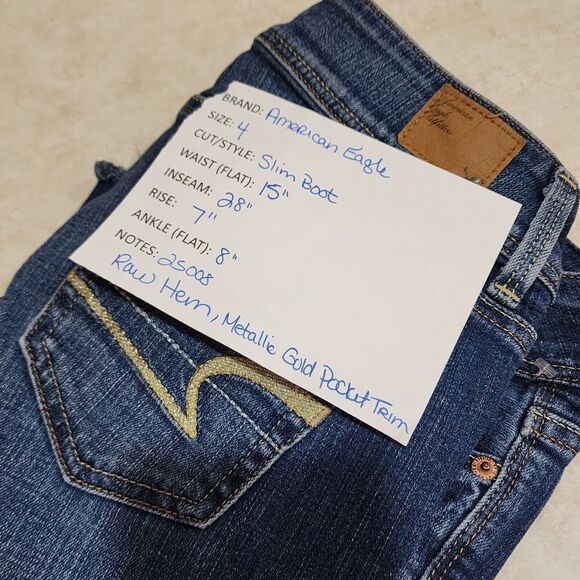 BRAND: American Eagle
SIZE: 4
CUT/STYLE: Slim Boot
WAIST (FLAT): 15"
INSEAM: 28"
RISE: 7"
ANKLE (FLAT): 8"
NOTES: 25008
Raw Hem, Metallic Gold Pocket Trim
American
Eagle
Outfitters